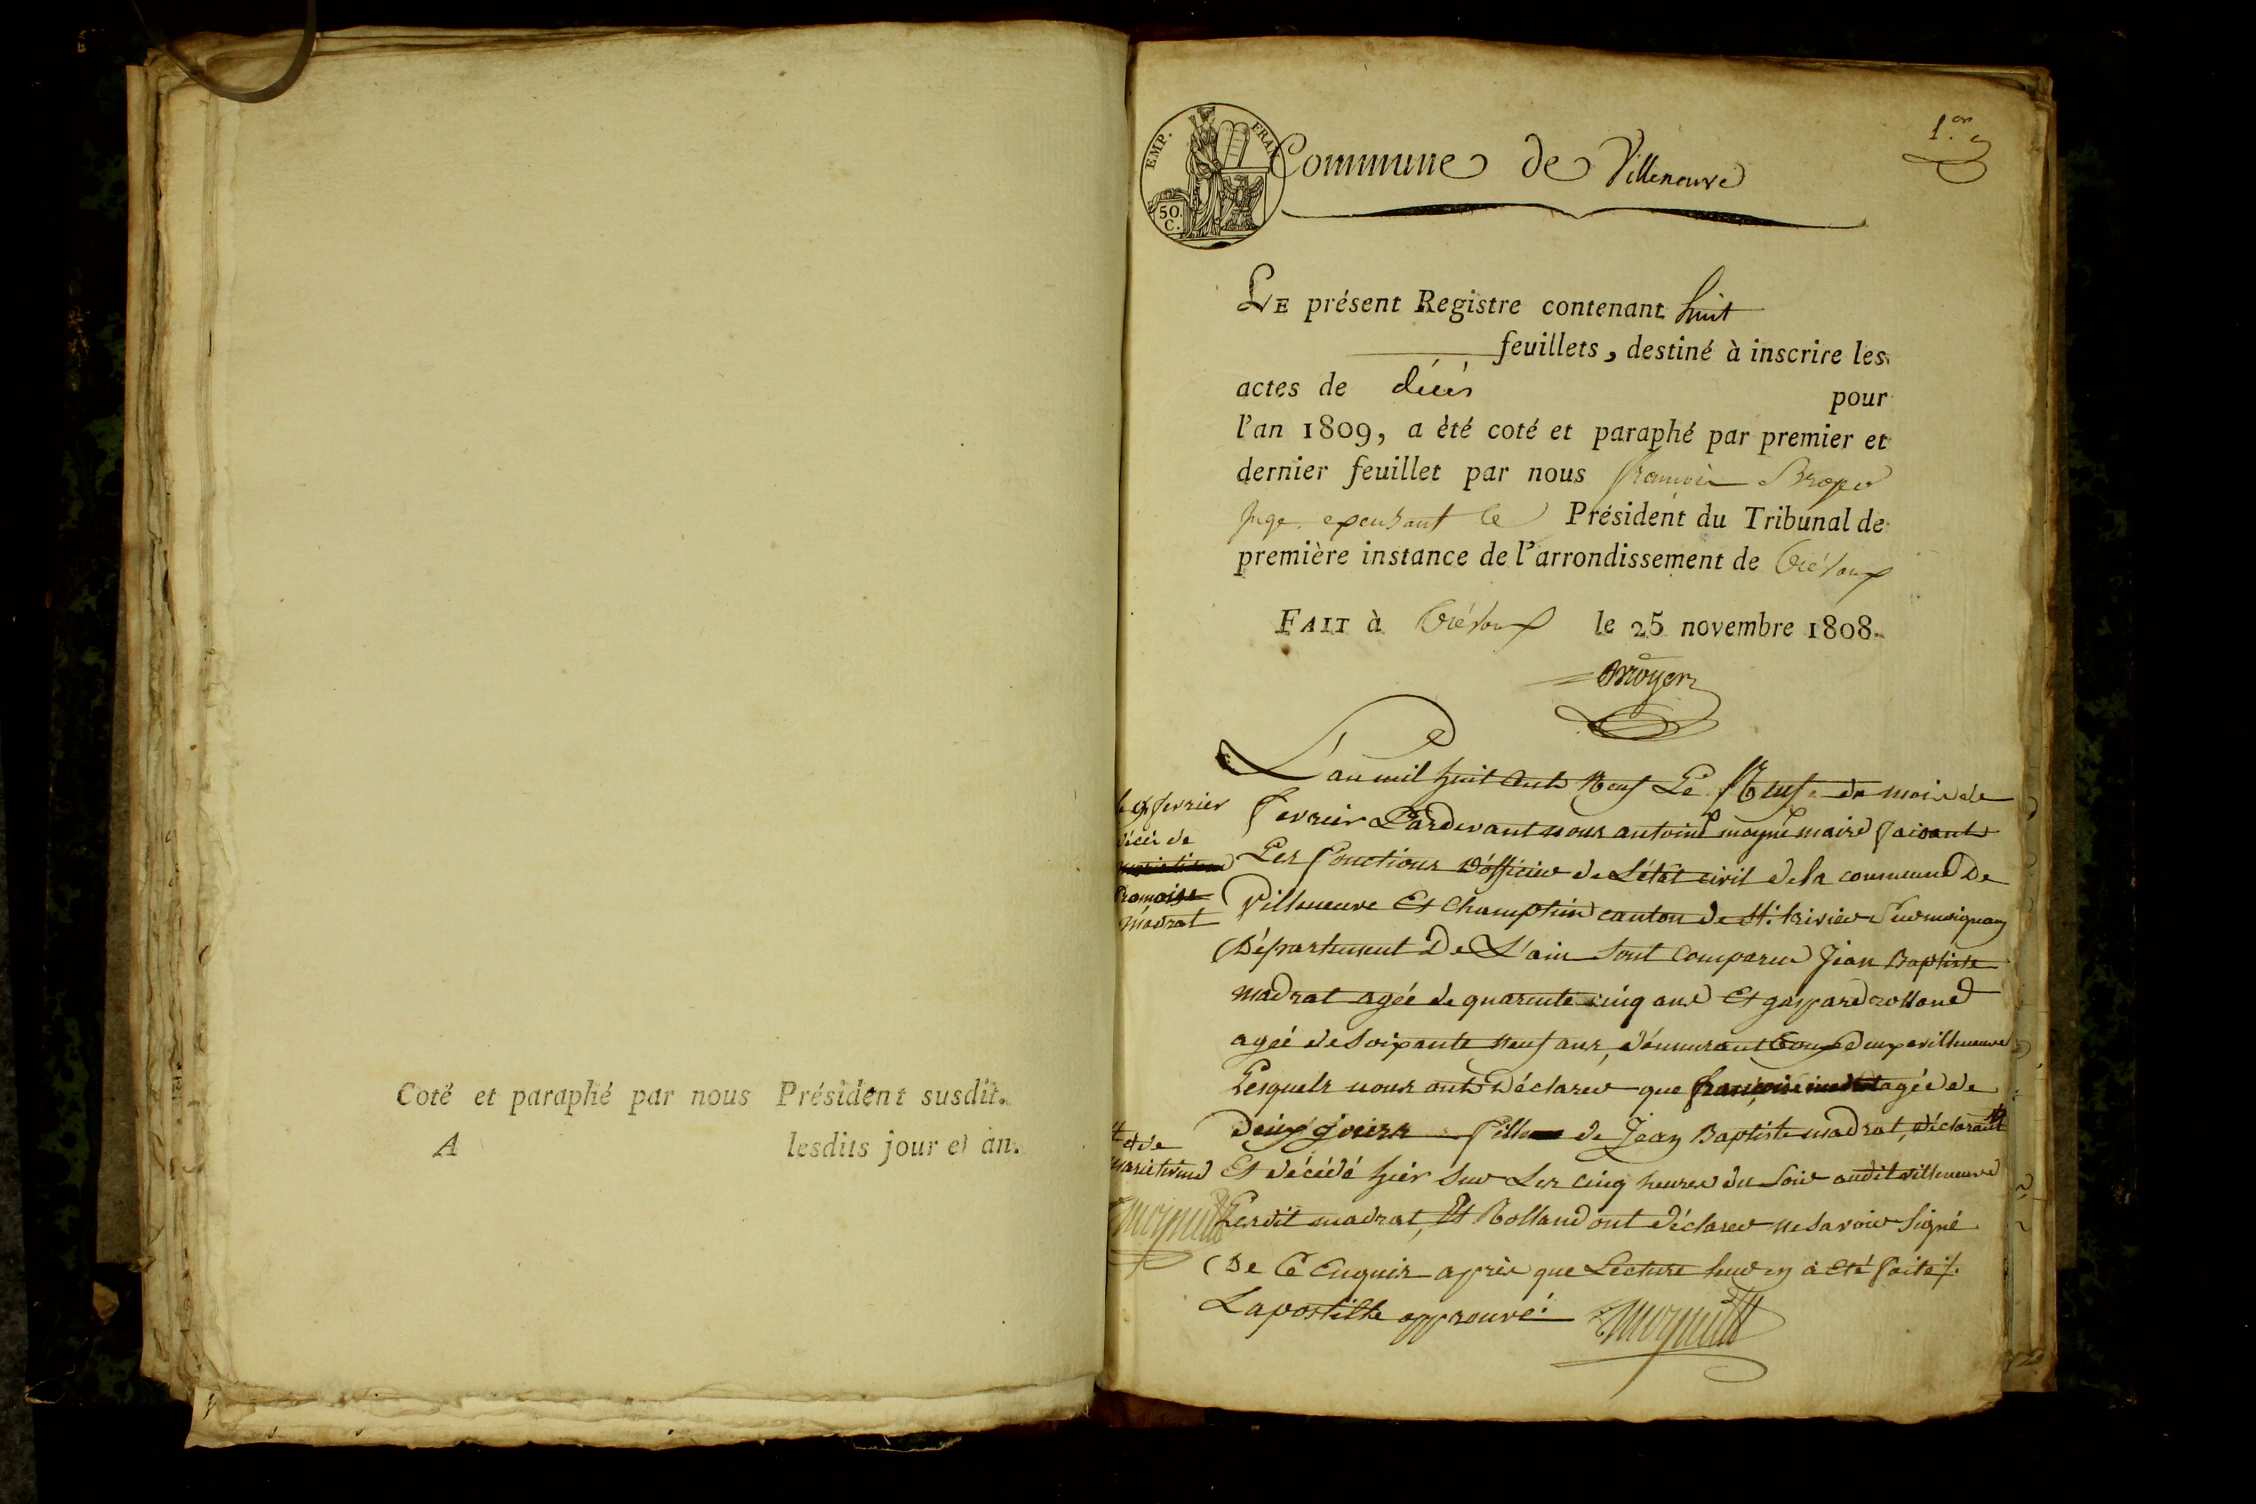 Coté et paraphé par nous Président susdit.
A lesdits jour et an.
1.er
EMP. FRAN
50. C.
Commune de Villeneuve
LE présent Registre contenant huit
feuillets, destiné à inscrire les
actes de décès pour
l'an 1809, a été coté et paraphé par premier et
dernier feuillet par nous françois
juge exerçant le Président du Tribunal de
première instance de l'arrondissement de Trévoux
FAIT à Trévoux le 25 novembre 1808.
L'an mil huit cents Neuf Le Neuf du mois de
fevrier Pardevant nous antoine maire faisant
Les fonctions D'officier de L'état civil de la commune De
Villeneuve Et Champtein canton de St. trivier
Département De L'ain Sont comparu Jean Baptiste
madrat agée de quarente cinq ans Et gaspard rolland
agée de Soixante neuf ans, démeurant tous Deux a villeneuve
Lesquels nous onts Déclarer que françoise madrat agée de
Deux jours fille de Jean Baptiste madrat, déclarant
Et décédé hier sur Les cinq heures du Soir audit villeneuve
Lesdit madrat, Et Rolland ont déclarer ne Savoir Signé
De Ce Enquis après que Lecture leur en a été faite
Lapostille approuvé
le 9 fevrier
décès de
francoise
madrat
et de